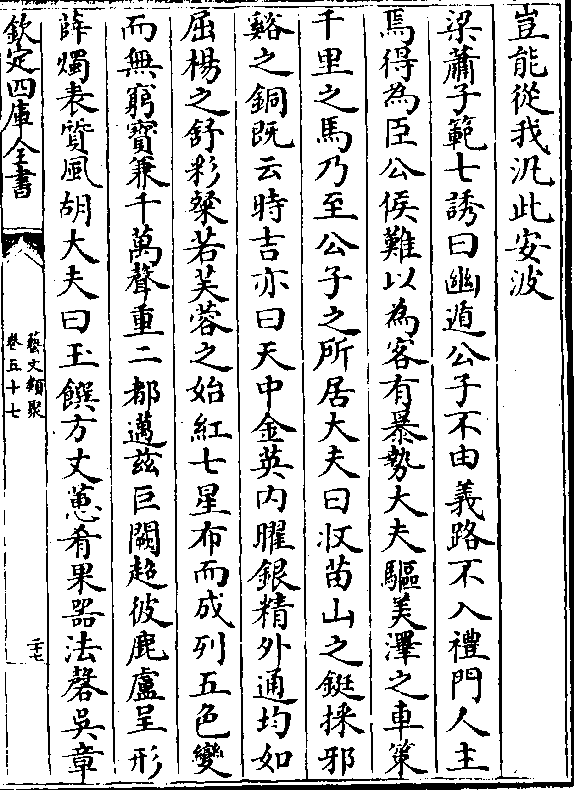 豈能從我汎此安波
梁蕭子範七誘曰幽遁公子不由義路不入禮門人主
焉得為臣公侯難以為客有暴勢大夫驅美澤之車策
千里之馬乃至公子之所居大夫曰收苗山之鋌採邪
谿之銅既云時吉亦曰天中金英內曜銀精外通均如
屈楊之舒彩粲若芙蓉之始紅七星布而成列五色變
而無窮寳兼千萬聲重二都邁兹巨闕超彼鹿盧呈形
薛燭表質風胡大夫曰玉饌方丈蕙肴果器法磬吳章
欽定四庫全書
藝文類聚
卷五十七
二十七